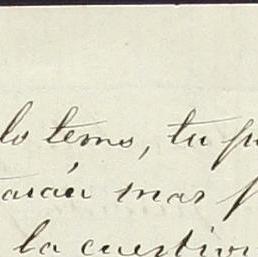 lo temo, tu p
tarán mas f
la cuestion